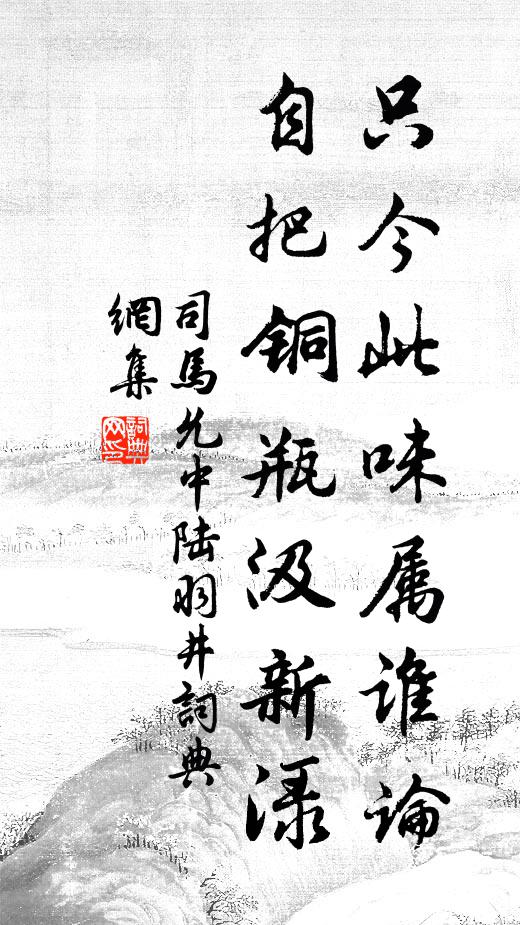 只今此味属谁论
自把铜瓶汲新渌
司馬允中陆羽井詞典
網集
詞典
网印